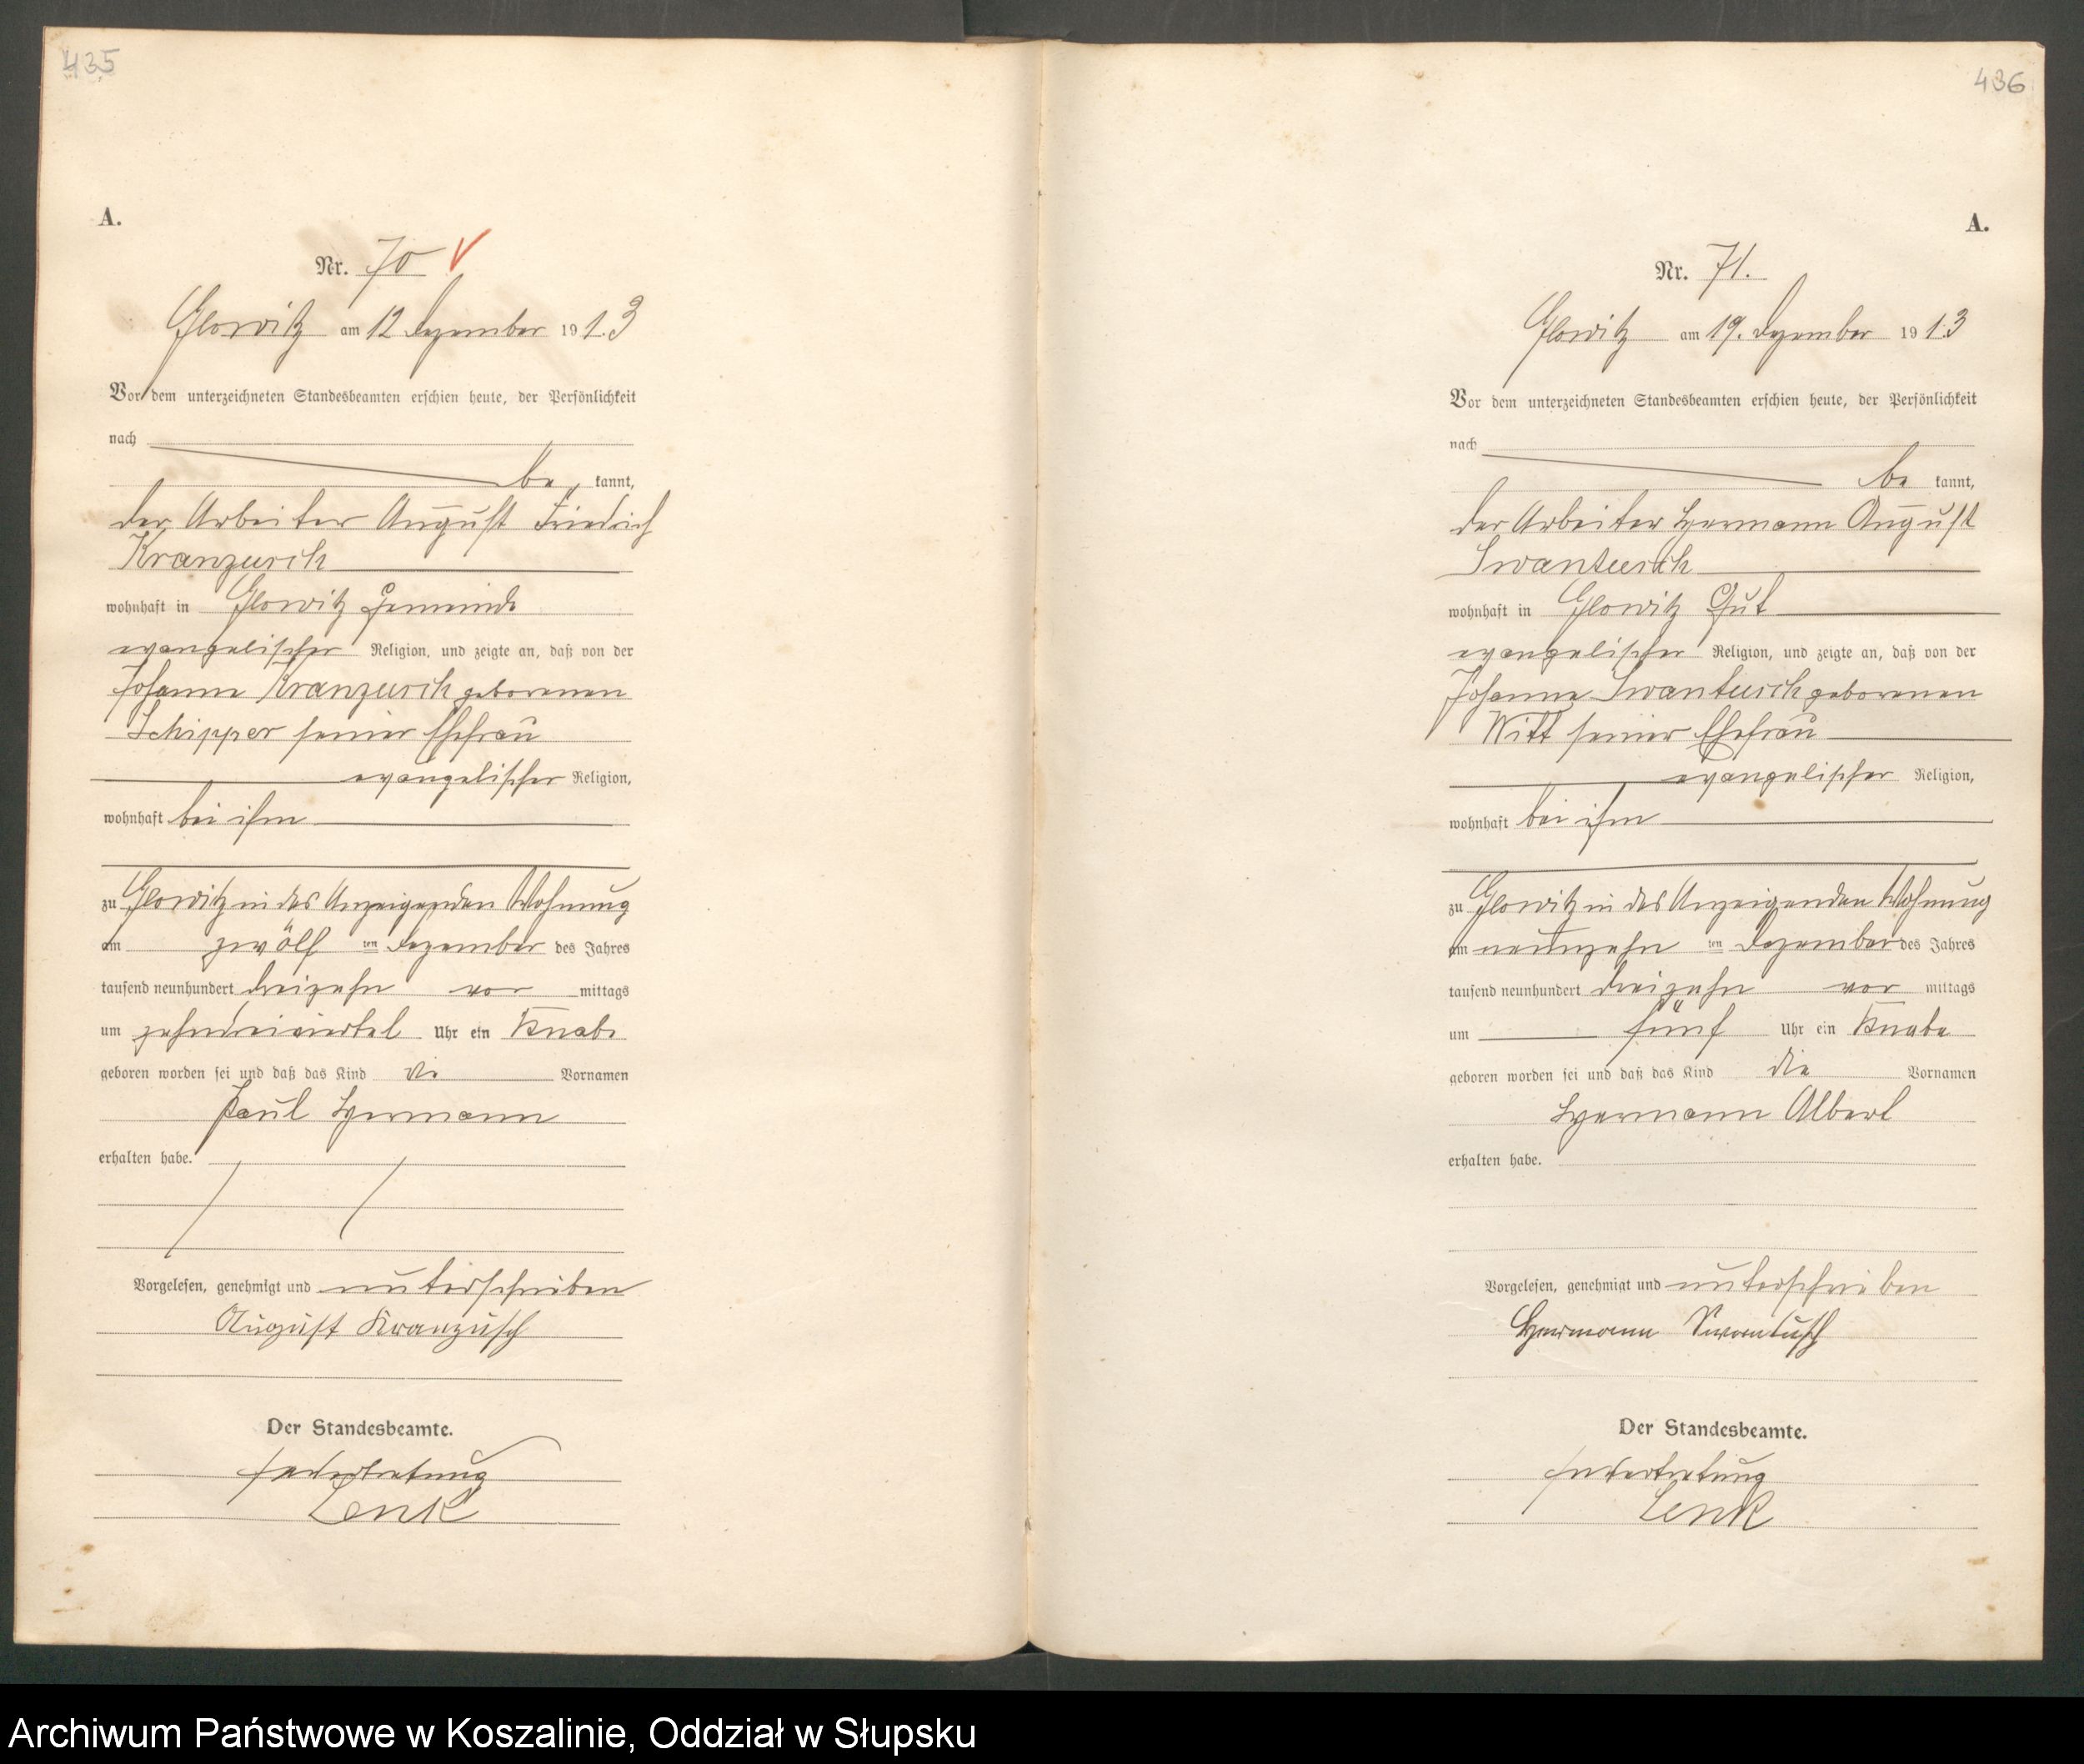 435
A.
Nr. 70
Glowitz am 12 Dezember 1913
Vor dem unterzeichneten Standesbeamten erschien heute, der Persönlichkeit
nach
be kannt,
der Arbeiter August Friedrich
Kranzusch
wohnhaft in Glowitz Gemeinde
evangelischer Religion, und zeigte an, daß von der
Johanne Kranzusch geborenen
Schipper seiner Ehefrau
evangelischer Religion,
wohnhaft bei ihm
zu Glowitz in des Anzeigenden Wohnung
am zwölf ten Dezember des Jahres
tausend neunhundert dreizehn vor mittags
um zehndreiviertel Uhr ein Knabe
geboren worden sei und daß das Kind die Vornamen
Paul Hermann
erhalten habe.
Vorgelesen, genehmigt und unterschrieben
August Kranzusch
Der Standesbeamte.
In Vertretung
Lenk
436
A.
Nr. 71.
Glowitz am 19. Dezember 1913
Vor dem unterzeichneten Standesbeamten erschien heute, der Persönlichkeit
nach
be kannt,
der Arbeiter Hermann August
Swantusch
wohnhaft in Glowitz Gut
evangelischer Religion, und zeigte an, daß von der
Johanne Swantusch geborenen
Witt seiner Ehefrau
evangelischer Religion,
wohnhaft bei ihm
zu Glowitz in des Anzeigenden Wohnung
am neunzehn ten Dezember des Jahres
tausend neunhundert dreizehn vor mittags
um fünf Uhr ein Knabe
geboren worden sei und daß das Kind die Vornamen
Hermann Albert
erhalten habe.
Vorgelesen, genehmigt und unterschrieben
Hermann Swantusch
Der Standesbeamte.
In Vertretung
Lenk
Archiwum Państwowe w Koszalinie, Oddział w Słupsku